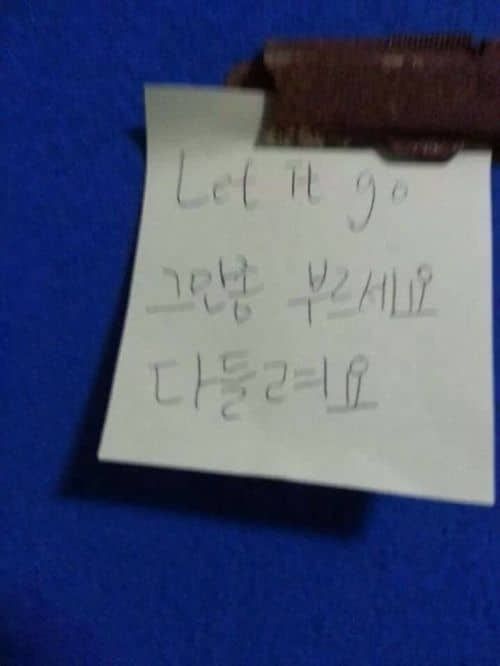 Let it go
그만좀 부르세요
다들려요